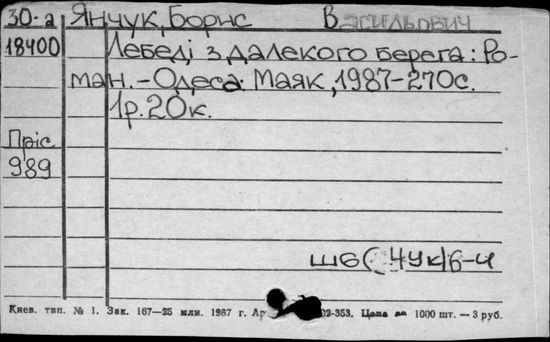 30-а Янчук, Борис Васильович
18400 Лебеді з далекого берега: Ро-
ман. - Одеса: Маяк, 1987 - 270с.
1р. 20к.
Пріс
989
Ш6(4Ук)6-4
Киев. тип. № 1. Зак. 167—25 млн. 1987 г. 02-353. Цена за 1000 шт. — 3 руб.